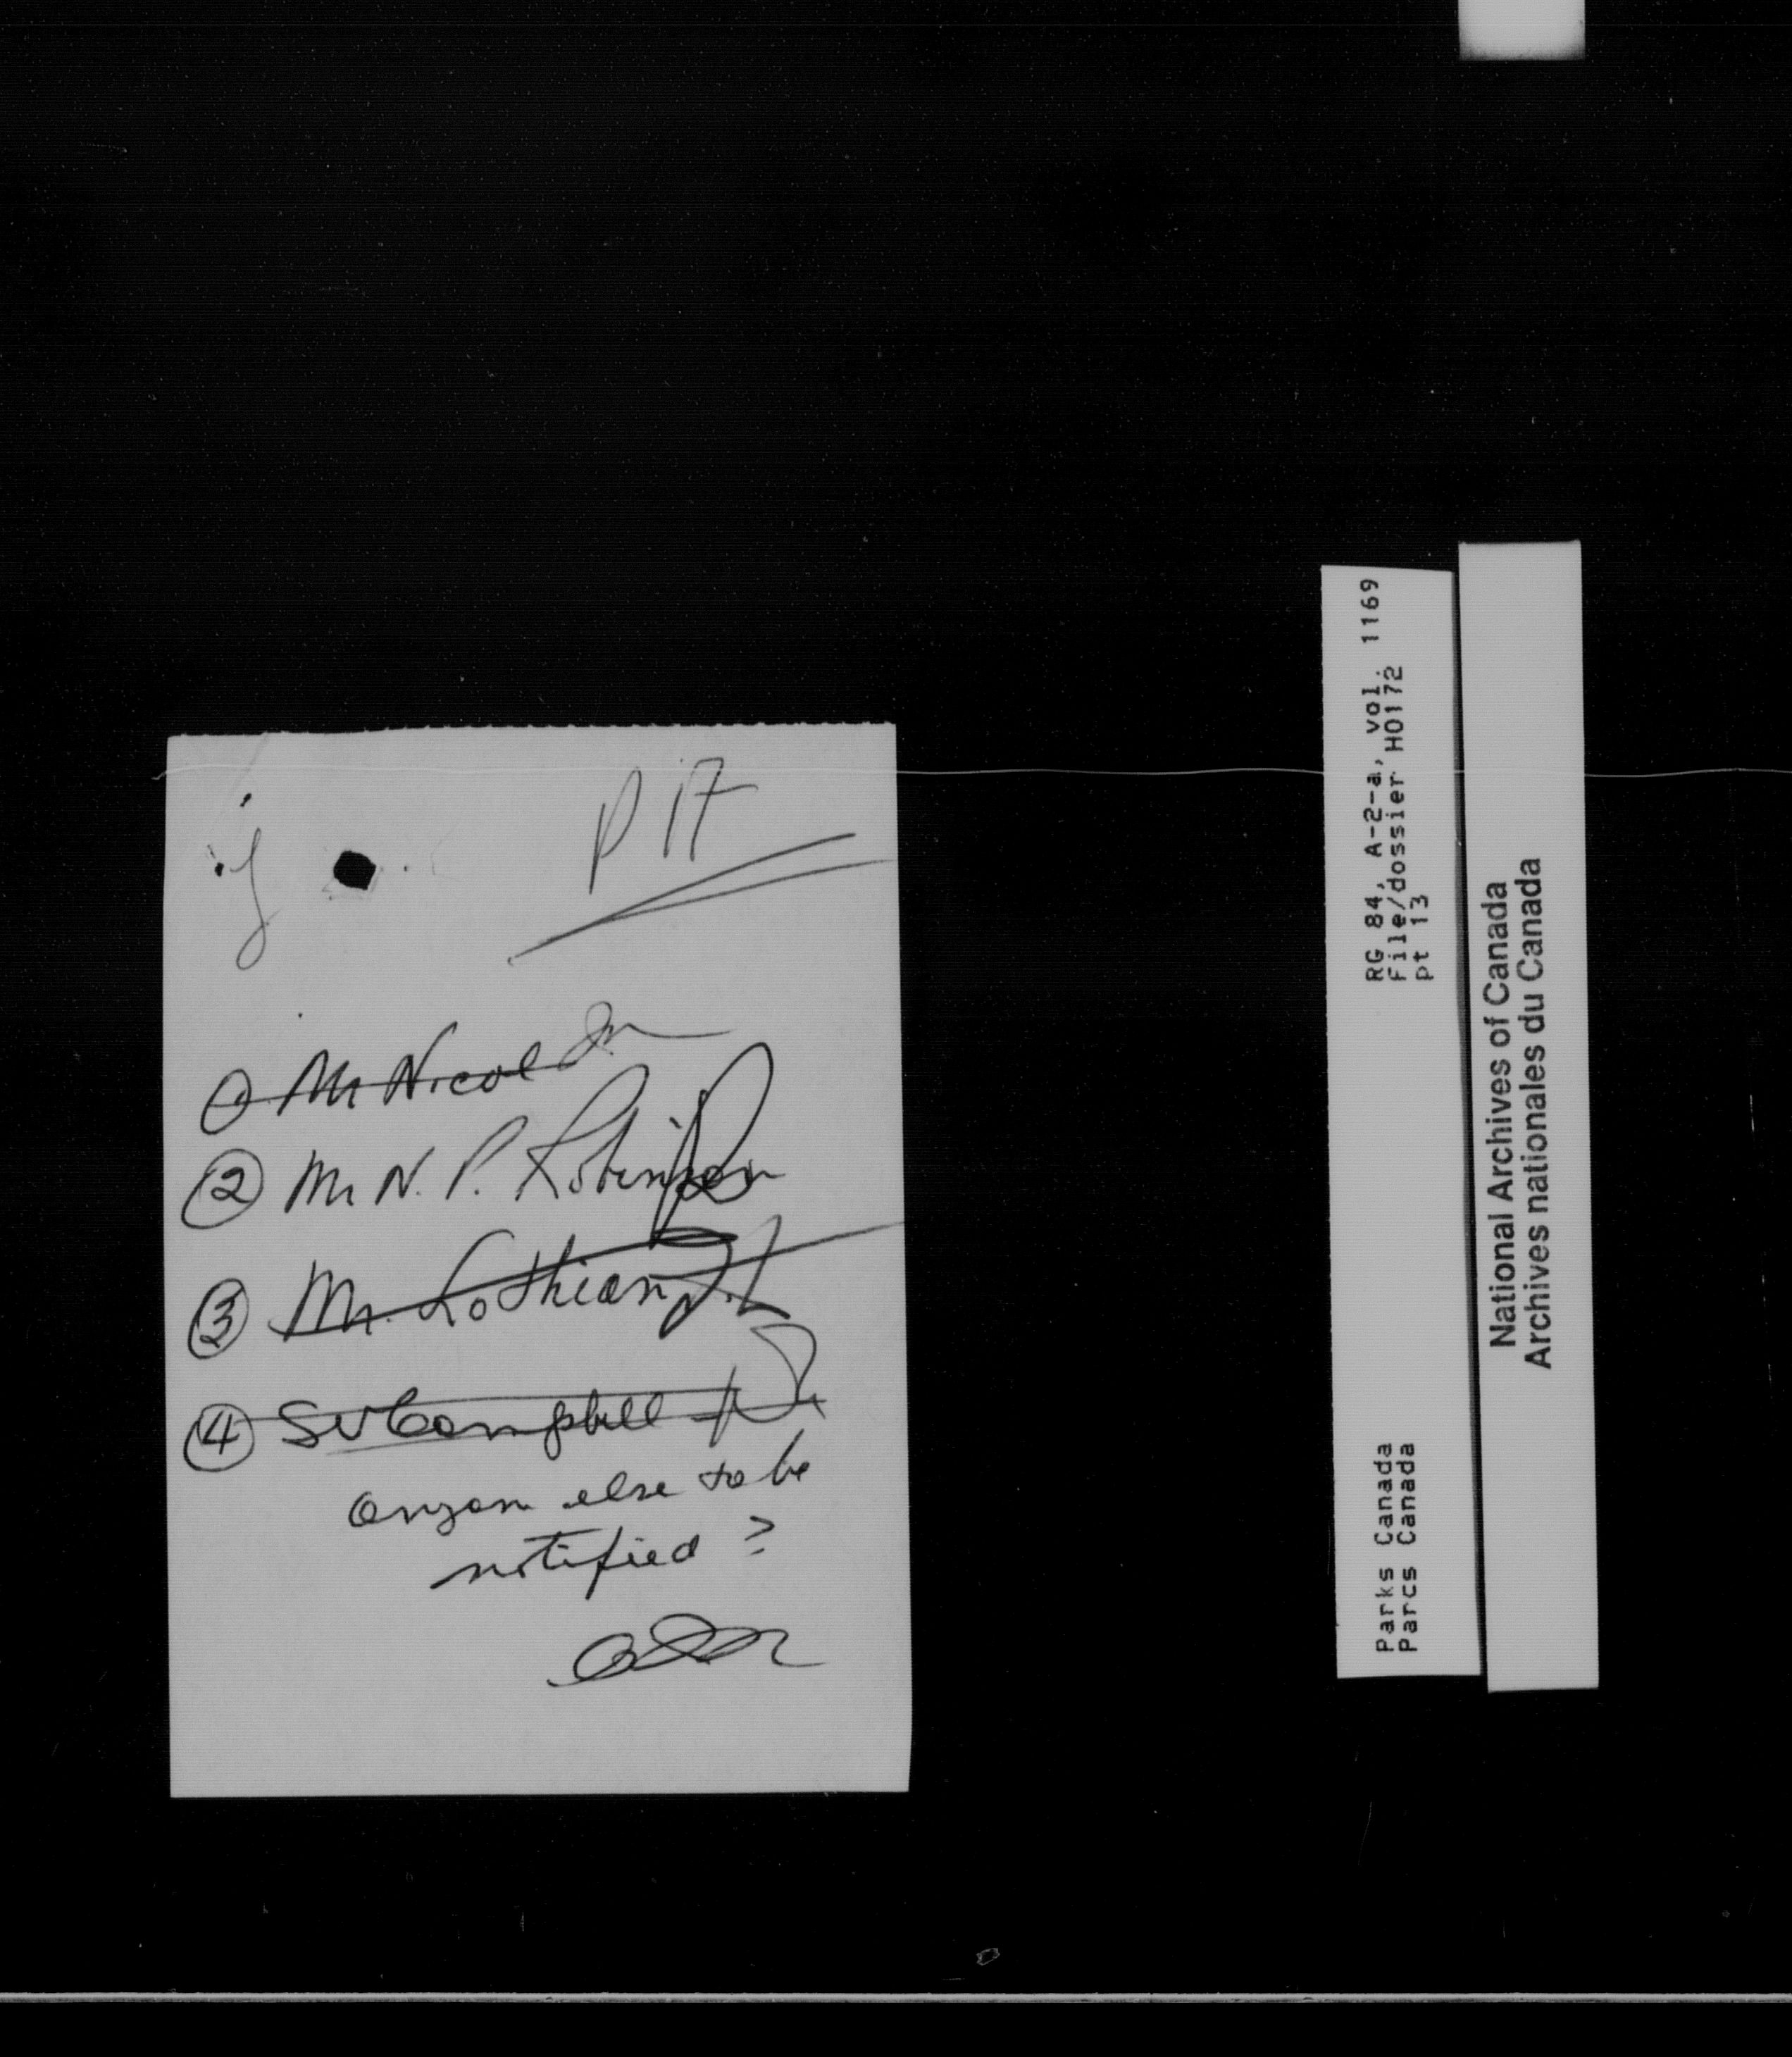 P 17
① Mr Nicol
② Mr N. P. Robinson
③ Mr. Lothian
④ SV Campbell
anyone else to be
notified ?
RG 84, A-2-a, vol. 1169
File/dossier H0172
pt 13
Parks Canada
Parcs Canada
National Archives of Canada
Archives nationales du Canada